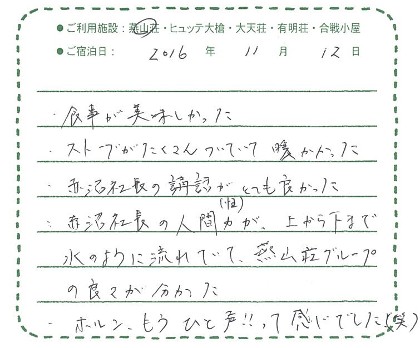 ●ご利用施設：燕山荘・ヒュッテ大槍・大天荘・有明荘・合戦小屋
●ご宿泊日： 2016 年 11 月 12 日
・食事が美味しかった
・ストーブがたくさんついていて暖かかった
・赤沼社長の講話がとても良かった
・赤沼社長の人間力(性)が、上から下まで
水のように流れてて、燕山荘グループ
の良さが分かった
・ホルン、もうひと声!!って感じでした(笑)